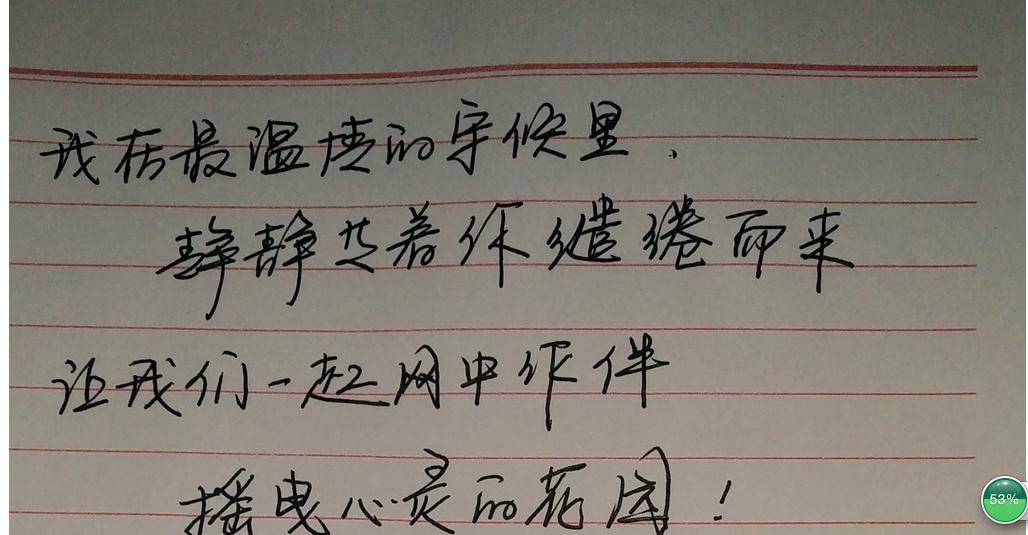 我在最温情的守候里、
静静着你缱绻而来
让我们一起网中作伴
摇曳心灵的花园！
53%